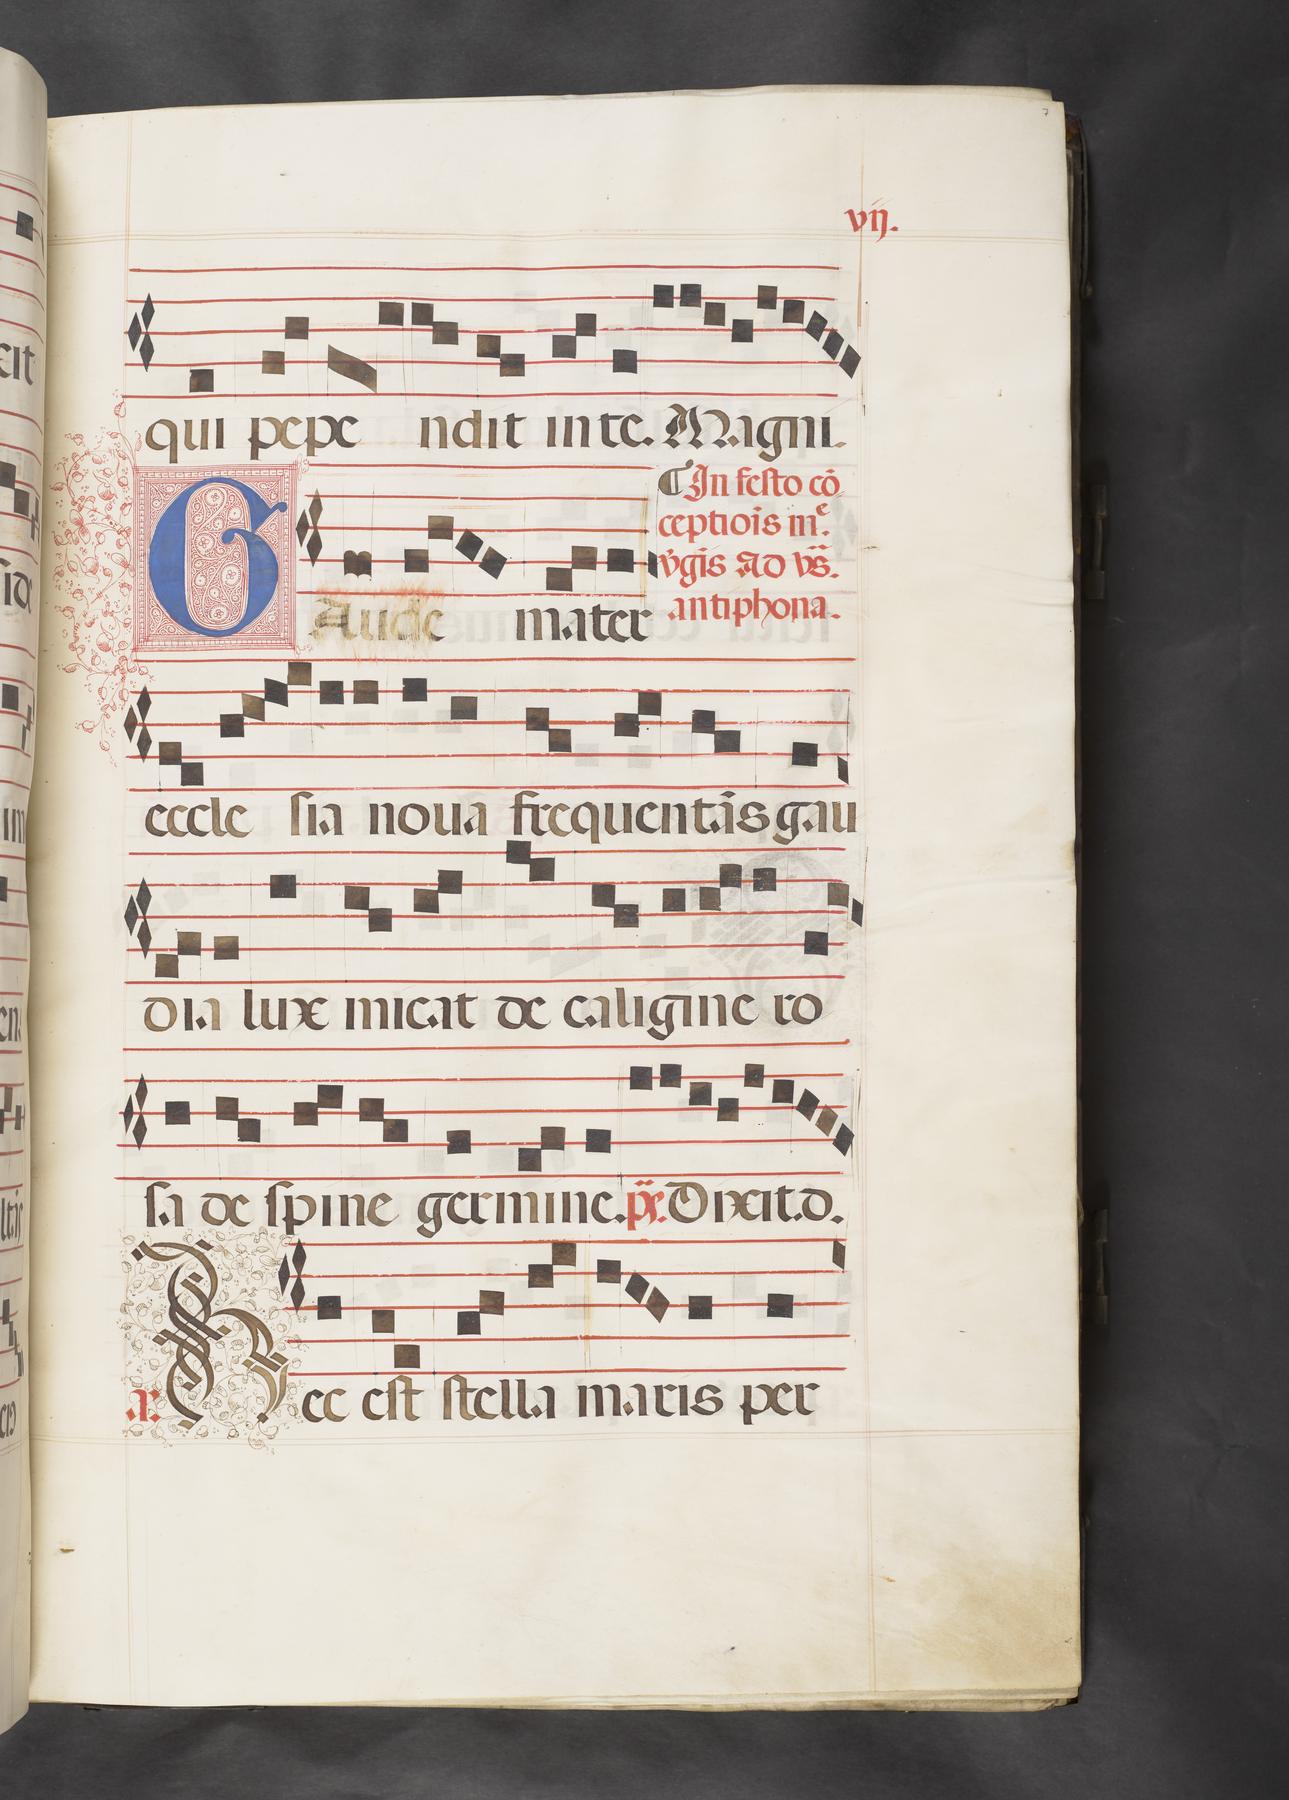 vij.
qui pepe ndit in te. Magni.
¶ In festo cō
ceptiois mᵉ.
v̄gis Ad vs̄.
antiphona.
GAude mater
eccle sia noua frequentās gau
dia lux micat de caligine ro
sa de spine germine. p̄s. Dixit.d.
a. Hec est stella maris per